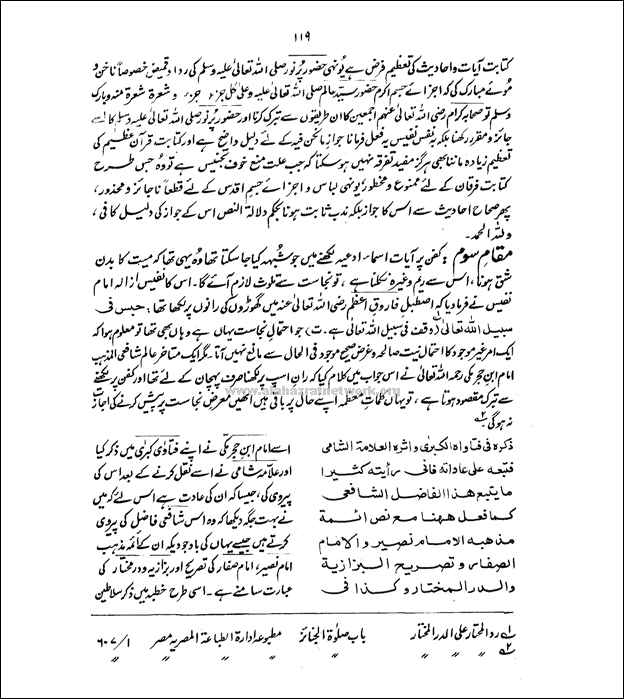 ۱۱۹
کتابت آیات و احادیث کی تعظیم فرض ہے یونہی حضور پُرنور صلی اللہ تعالیٰ علیہ وسلم کی ردا و قمیص خصوصاً ناخن و
موئے مبارک کی کہ اجزائے جسم اکرم حضور سید عالم صلی اللہ تعالیٰ علیہ وعلیٰ کل جزء جزء و شعرۃ شعرۃ منہ وبارک
وسلم تو صحابہ کرام رضی اللہ تعالیٰ عنہم اجمعین کا ان طریقوں سے تبرک کرنا اور حضور پُرنور صلی اللہ تعالیٰ علیہ وسلم کا اسے
جائز و مقرر رکھنا بلکہ بہ نفس نفیس یہ فعل فرمانا جواز مانحن فیہ کے لئے دلیل واضح ہے اور کتابت قرآن عظیم کی
تعظیم زیادہ ماننا بھی ہرگز مفید تفرقہ نہیں ہوسکتا کہ جب علت منع خوف تنجیس ہے تو وہ جس طرح
کتابت فرقان کے لئے ممنوع و محظور یونہی لباس و اجزائے جسم اقدس کے لئے قطعاً ناجائز و محذور،
پھر صحاح احادیث سے اس کا جواز بلکہ ندب ثابت ہونا بحکم دلالۃ النص اس کے جواز کی دلیل کافی،
وللہ الحمد۔
مقام سوم: کفن پر آیات اسماء ادعیہ لکھنے میں جو شبہہ کیا جاسکتا تھا وہ یہی تھا کہ میت کا بدن
شق ہونا، اس سے ریم وغیرہ نکلنا ہے، تو نجاست سے تلوث لازم آئے گا۔ اس کا نفیس ازالہ امام
نفیس نے فرمادیا کہ اصطبل فاروق اعظم رضی اللہ تعالیٰ عنہ میں گھوڑوں کی رانوں پر لکھا تھا: حبس فی
سبیل اللہ تعالیٰ (وقف فی سبیل اللہ تعالیٰ ہے۔ ت) جو احتمال نجاست یہاں ہے وہاں بھی تھا تو معلوم ہوا کہ
ایک امر غیر موجود کا احتمال نیت صالحہ و غرض صحیح موجود فی الحال سے مانع نہیں آتا۔ مگر ایک متاخر عالم شافعی المذہب
امام ابن حجر مکی رحمہ اللہ تعالیٰ نے اس جواب میں کلام کیا کہ ران اسپ پر لکھنا صرف پہچان کے لئے تھا اور کفن پر لکھنے
سے تبرک مقصود ہوتا ہے، تو یہاں کلمات معظمہ اپنے حال پر باقی ہیں انھیں معرض نجاست پر پیش کرنے کی اجازت
نہ ہوگی ۲
www.alahazratnetwork.org
ذکرہ فی فتاواہ الکبری واثرہ العلامۃ الشامی
فتبعہ علی عاداتہ فانی رأیتہ کثیرا
ما یتبع ھذا الفاضل الشافعی
کما فعل ھھنا مع نص ائمۃ
مذھبہ الامام نصیر والامام
الصفار وتصریح البزازیۃ
والدرالمختار وکذا فی
اسے امام ابن حجر مکی نے اپنے فتاوٰی کبرٰی میں ذکر کیا
اور علامہ شامی نے اسے نقل کرنے کے بعد اس کی
پیروی کی، جیسا کہ ان کی عادت ہے اس لئے کہ میں
نے بہت جگہ دیکھا کہ وہ اس شافعی فاضل کی پیروی
کرتے ہیں جیسے یہاں کی باوجودیکہ ان کے ائمہ مذہب
امام نصیر، امام صفار کی تصریح اور بزازیہ و درمختار کی
عبارت سامنے ہے۔ اسی طرح خطبہ میں ذکر سلاطین
۱ ردالمحتار علی الدرالمختار باب صلٰوۃ الجنائز مطبوعہ ادارۃ الطباعۃ المصریہ مصر ۱/ ۶۰۷
۲ ״ ״ ״ ״ ״